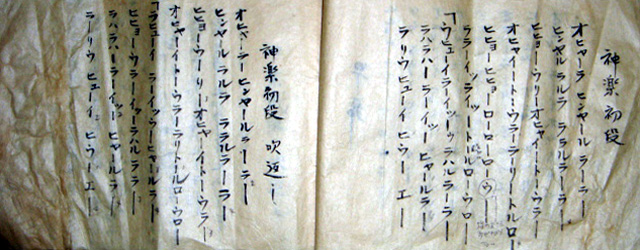 神楽初段
オヒャーラ ヒンヤール ラーラー
ヒンヤル ラルラ ラララルラーラー
ヒヒョーウリーオヒャイートーウラー
オヒャイートーウラーラリートールロ
ヒヒョーヒヒョーローローロー(ウ)
ララーイッライットールローウロー
「ウヒューイライーツゥラハルラーラー
ラハラハーラーイッー ヒャールラー
ラリウヒューイ ヒーウー エー
神楽初段 吹返し
オヒャーラー ヒンヤールラーラー
ヒンヤールラルラ ラララルラーラー
ヒヒョーウーリーオヒャーイトーウラー
オヒャーイトーウラーラリトールローウロ
「ラヒューイ ラーイッウーヒャールラー
ヒヒョーウラーイッラハルララー
ラハラハーラーイッー ヒャールラー
ラーリウ ヒューイ ヒーウー エー